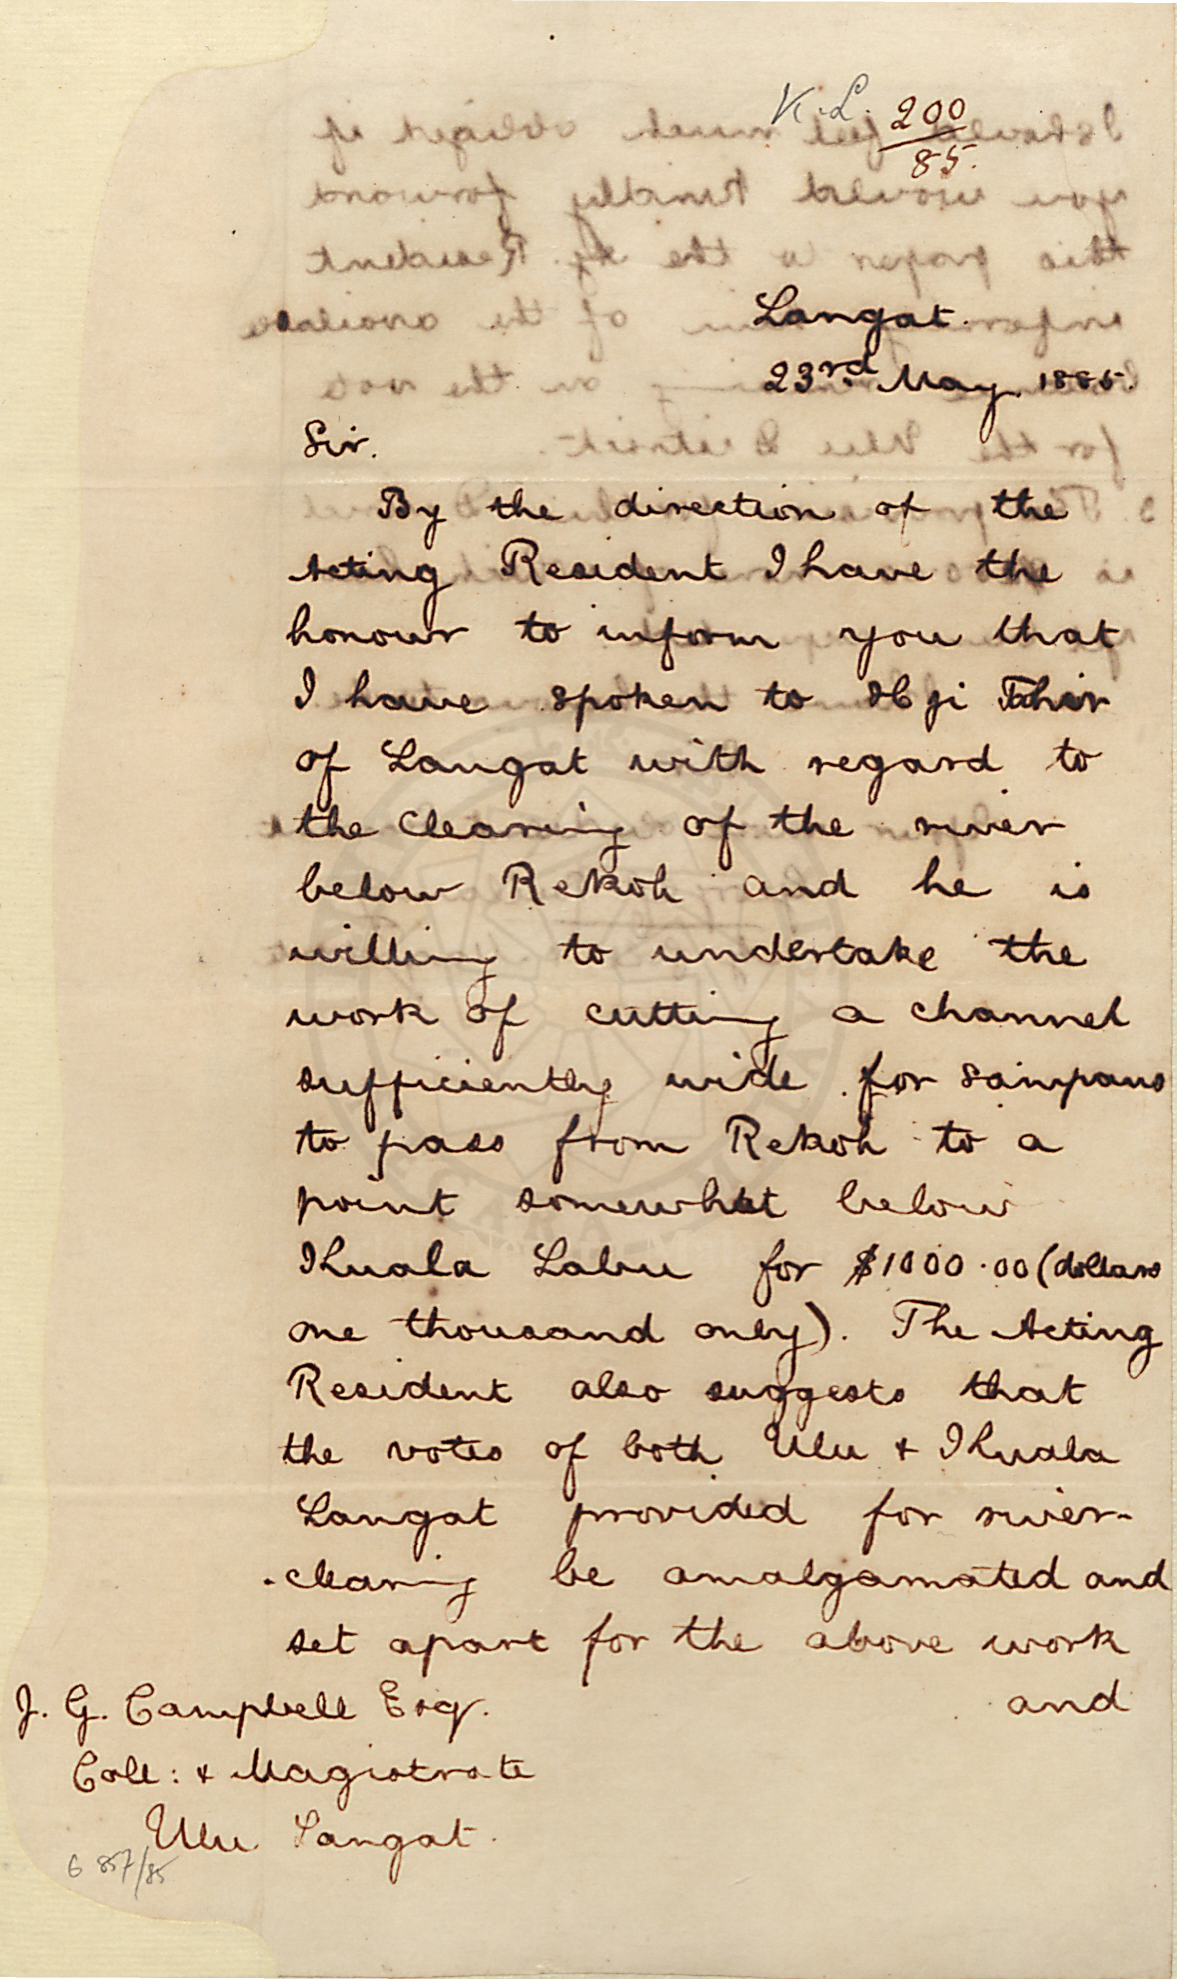 K.L. 200
85.
Langat.
23rd May 1885.
Sir.
By the direction of the
Acting Resident I have the
honour to inform you that
I have spoken to Hji Tahir
of Langat with regard to
the clearing of the river
below Rekoh and he is
willing to undertake the
work of cutting a channel
sufficiently wide for sampans
to pass from Rekoh to a
point somewhat below
Kuala Labu for $1000.00 (dollars
one thousand only). The Acting
Resident also suggests that
the votes of both Ulu & Kuala
Langat provided for river-
-clearing be amalgamated and
set apart for the above work
and
J. G. Campbell Esq.
Coll: & Magistrate
Ulu Langat.
G 857/85